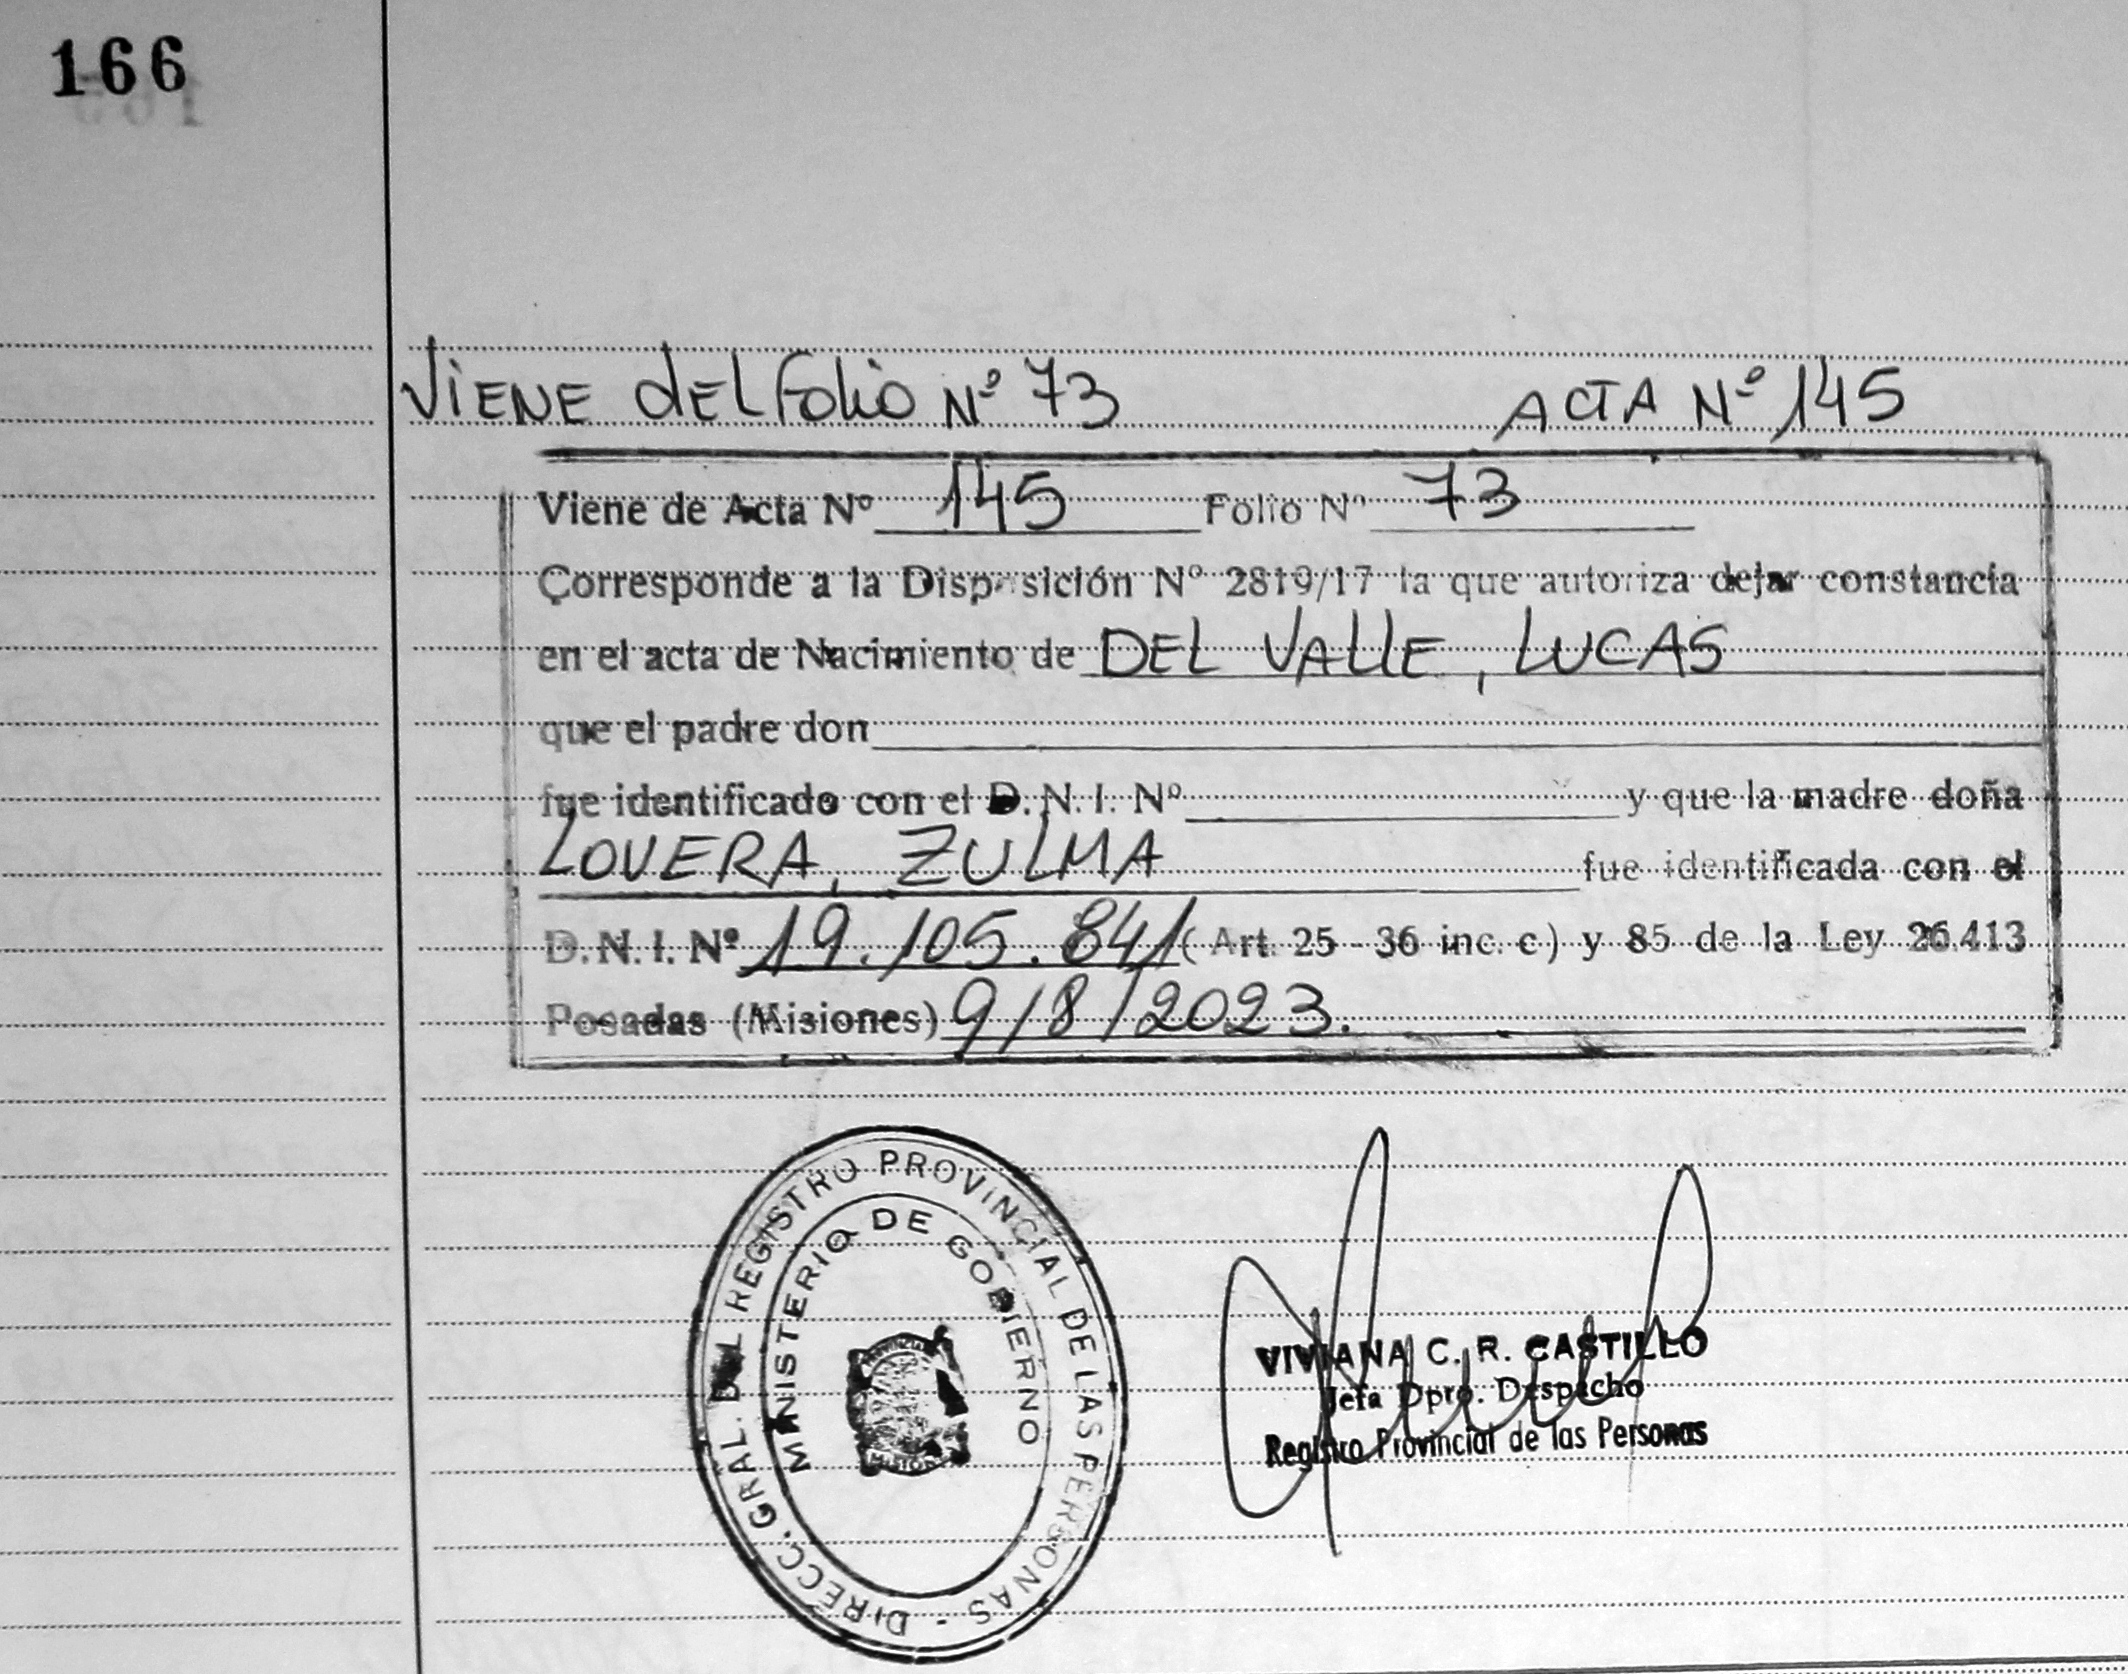 166
VIENE dEL Folio Nº 73 ACTA Nº 145
Viene de Acta Nº 145 Folio Nº 73
Corresponde a la Disposición Nº 2819/17 la que autoriza dejar constancia
en el acta de Nacimiento de DEL VALLE, LUCAS
que el padre don
fue identificado con el D. N. I. Nº y que la madre doña
LOVERA, ZULMA fue identificada con el
D. N. I. Nº 19.105.841 ( Art. 25 - 36 inc. c ) y 85 de la Ley 26.413
Posadas (Misiones) 9/8/2023.
DIRECC. GRAL. DEL REGISTRO PROVINCIAL DE LAS PERSONAS -
MINISTERIO DE GOBIERNO
PROVINCIA
MISIONES
VIVIANA C. R. CASTILLO
Jefa Dpro. Despacho
Registro Provincial de las Personas